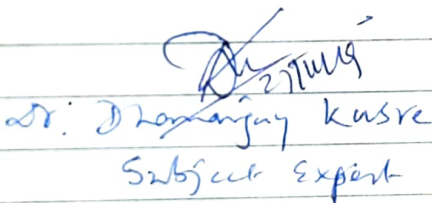 Dr. Dhananjay Kusre
Subject Expert